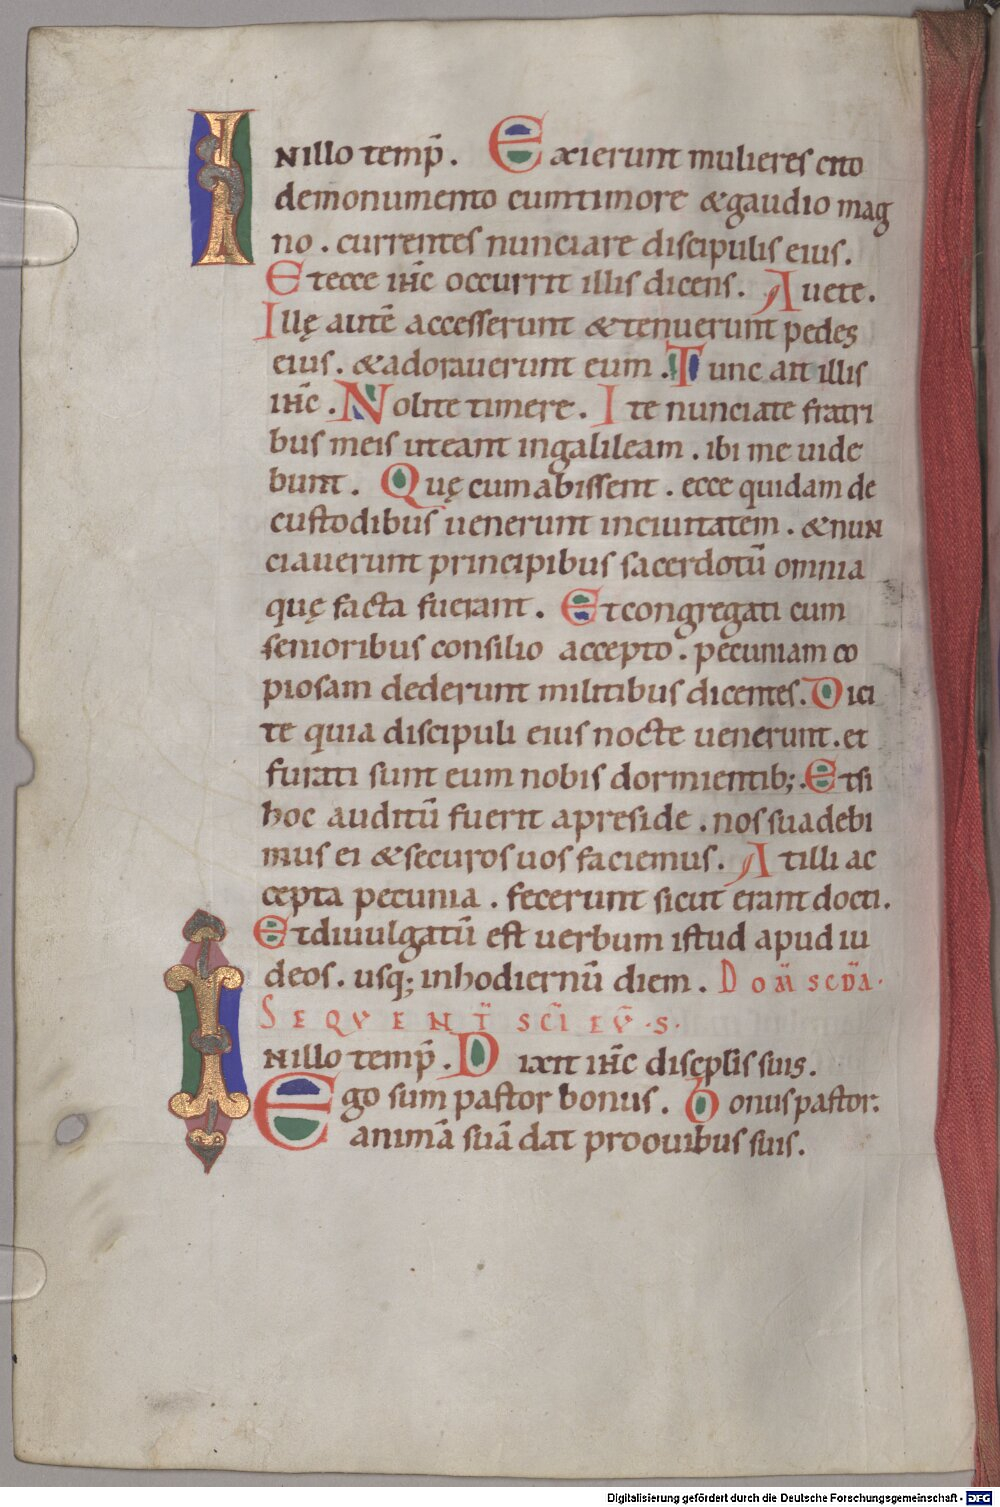 INillo temp̄. Exierunt mulieres cito
demonumento cumtimore &gaudio mag
no. currentes nunciare discipulis eius.
Etecce ih̄c occurrit illis dicens. Auete.
Illę autē accesserunt &tenuerunt pedes
eius. &adorauerunt eum. Tunc ait illis
ih̄c. Nolite timere. Ite nunciate fratri
bus meis uteant ingalileam. ibi me uide
bunt. Quę cumabissent. ecce quidam de
custodibus uenerunt inciuitatem. &nun
ciauerunt principibus sacerdotū omnia
quę facta fuerant. Etcongregati cum
senioribus consilio accepto. pecuniam co
piosam dederunt militibus dicentes. Dici
te quia discipuli eius nocte uenerunt. et
furati sunt eum nobis dormientib;. Etsi
hoc auditū fuerit apreside. nos suadebi
mus ei &securos uos faciemus. Atilli ac
cepta pecunia. fecerunt sicut erant docti.
Etdiuulgatū est uerbum istud apud iu
deos. usq; inhodiernū diem. DOM̄ SCDA.
SEQVENT̄ SC̄I EV̄.S.
INillo temp̄. Dixit ih̄c discplis suis.
Ego sum pastor bonus. Bonus pastor.
animā suā dat proouibus suis.
Digitalisierung gefördert durch die Deutsche Forschungsgemeinschaft - DFG